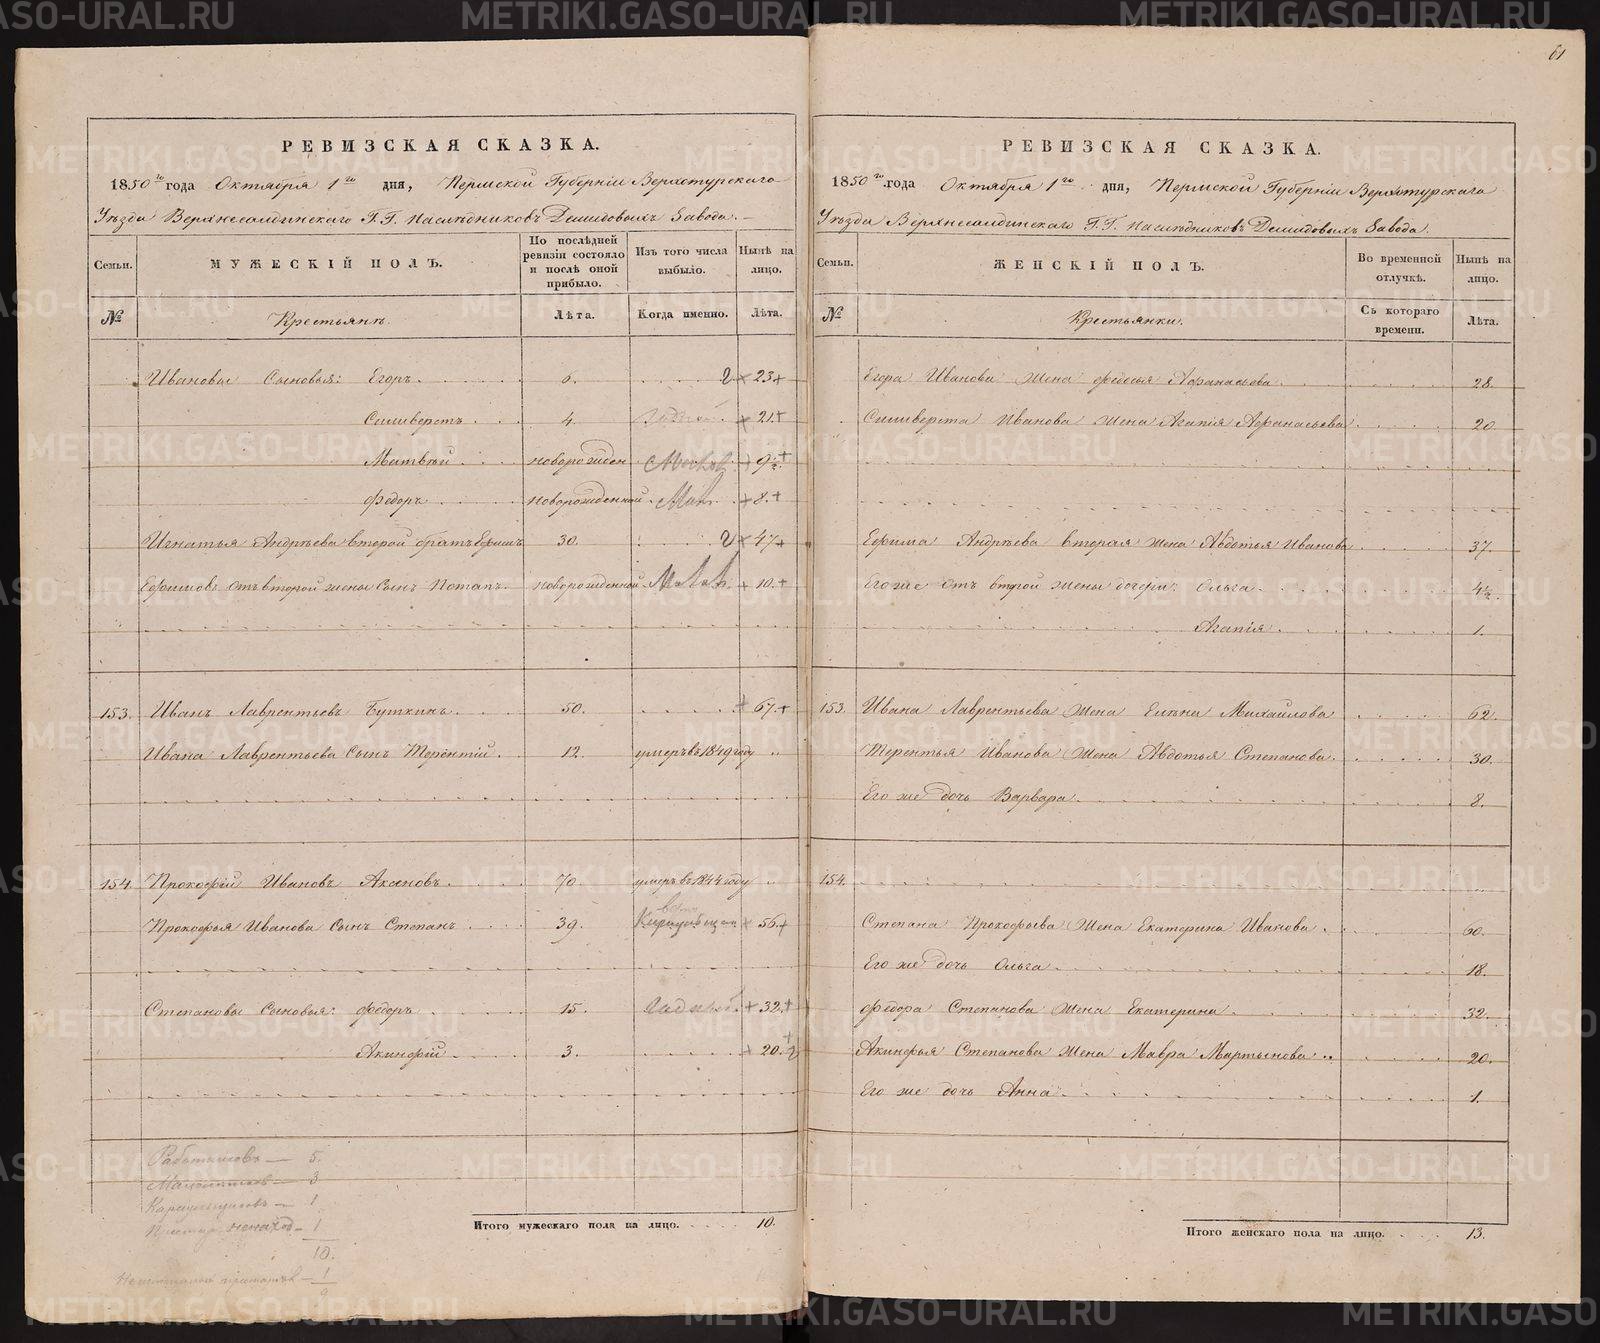 61
РЕВИЗСКАЯ СКАЗКА.
1850го года Октября 1го дня, Пермской Губерніи Верхотурскаго
Уѣзда Верхнесалдинскаго Г.Г. Наслѣдниковъ Демидовыхъ Завода.
Семьи. МУЖЕСКІЙ ПОЛЪ. По послѣдней ревизіи состояло и послѣ оной прибыло. Изъ того числа выбыло. Нынѣ на лицо.
№ Крестьянъ. Лѣта. Когда именно. Лѣта.
Ивановы Сыновья: Егоръ 6. 23
Силиверстъ 4. Годной 21
Матвѣй новорожден 9½
Федоръ новорожденной Мал. 8
Игнатья Андрѣева второй братъ Ефимъ 30. 47
Ефимовъ отъ второй жены Сынъ Потапъ новорожденной 10.
153. Иванъ Лаврентьевъ Буткинъ 50. 67.
Ивана Лаврентьева Сынъ Терентій 12. умеръ въ 1849 году
154. Прокофій Ивановъ Аксеновъ 70. умеръ въ 1844 году
Прокофья Иванова Сынъ Степанъ 39. 56.
Степановы Сыновья: Федоръ 15. Годной 32
Акинфій 3. 20.
Работниковъ — 5.
Малолѣтковъ — 3
Караульщиковъ — 1
1
10.
1
9
Итого мужескаго пола на лицо. 10.
РЕВИЗСКАЯ СКАЗКА.
1850го года Октября 1го дня, Пермской Губерніи Верхотурскаго
Уѣзда Верхнесалдинскаго Г.Г. Наслѣдниковъ Демидовыхъ Завода.
Семьи. ЖЕНСКІЙ ПОЛЪ. Во временной отлучкѣ. Нынѣ на лицо.
№ Крестьянки. Съ котораго времени. Лѣта.
Егора Иванова Жена Федосья Афанасьева 28.
Силиверста Иванова Жена Агапія Афанасьева 20.
Ефима Андрѣева вторая жена Авдотья Иванова 37.
Его же отъ второй жены дочери: Ольга 4½.
Агапія 1.
153. Ивана Лаврентьева Жена Елена Михайлова 62.
Терентья Иванова Жена Авдотья Степанова 30.
Его же дочь Варвара 8.
154.
Степана Прокофьева Жена Екатерина Иванова 60.
Его же дочь Ольга 18.
Федора Степанова Жена Екатерина 32.
Акинфья Степанова Жена Мавра Мартынова 20.
Его же дочь Анна 1.
Итого женскаго пола на лицо. 13.
METRIKI.GASO-URAL.RU